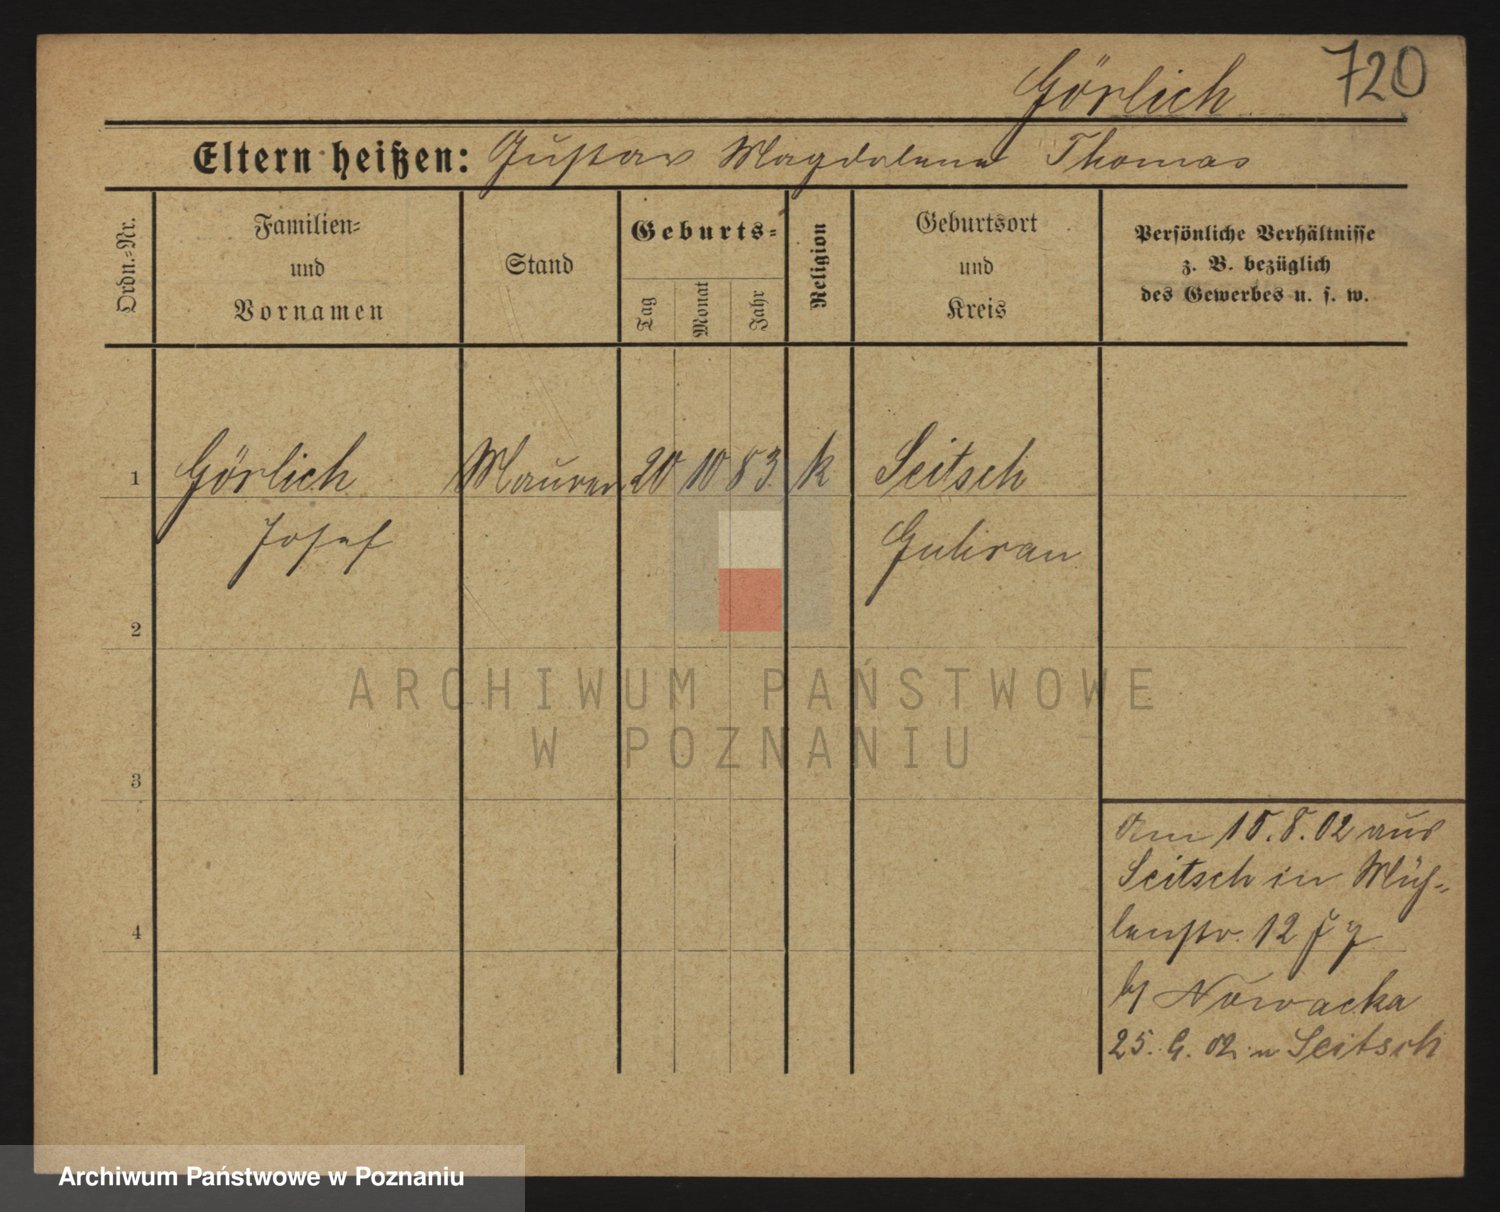 Görlich 720
Eltern heißen: Gustav Magdalena Thomas
Ordn.-Nr.
Familien-
und
Vornamen
Stand
Geburts-
Tag
Monat
Jahr
Religion
Geburtsort
und
Kreis
Persönliche Verhältnisse
z. B. bezüglich
des Gewerbes u. s. w.
1 Görlich Maurer 20 10 83 k Seitsch
Josef Guhrau
2
ARCHIWUM PAŃSTWOWE
W POZNANIU
3
Am 15.8.02 aus
Seitsch in Müh-
lenstr. 12
bei Nowacka
25. 9. 02 n Seitsch
4
Archiwum Państwowe w Poznaniu